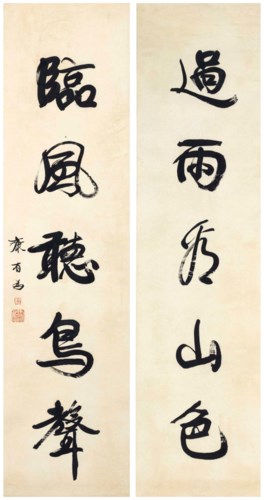 過雨看山色
臨風聽鳥聲
康有為